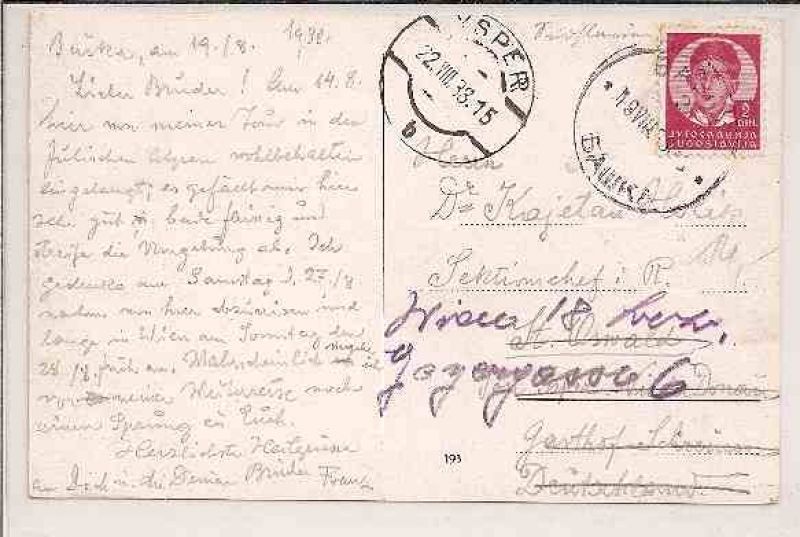 Baška, am 19./8. 1938.
Lieber Bruder! Am 14.8.
hier von meiner Tour in den
Julischen Alpen wohlbehalten
eingelangt; es gefällt mir hier
sehr gut; bade fleißig und
die Umgebung ab. Ich
gedenke am Samstag d. 27./8
von hier abzureisen und
lange in Wien am Sonntag den
28./8. früh an. Wahrscheinlich ich
vor meiner Heimreise noch
einen Sprung zu Euch.
Herzlichste Heilgrüße
an Dich u. die Deinen Bruder Franz
YSPER
22.VIII.38.15
b
БАШКА
2
DIN.
ЈУГОСЛАВИЈА
JUGOSLAVIJA
Herrn
Dr Kajetan
Sektionschef i. R.
Wien 18
St. Oswald
Gasthof
Deutschland.
6
193